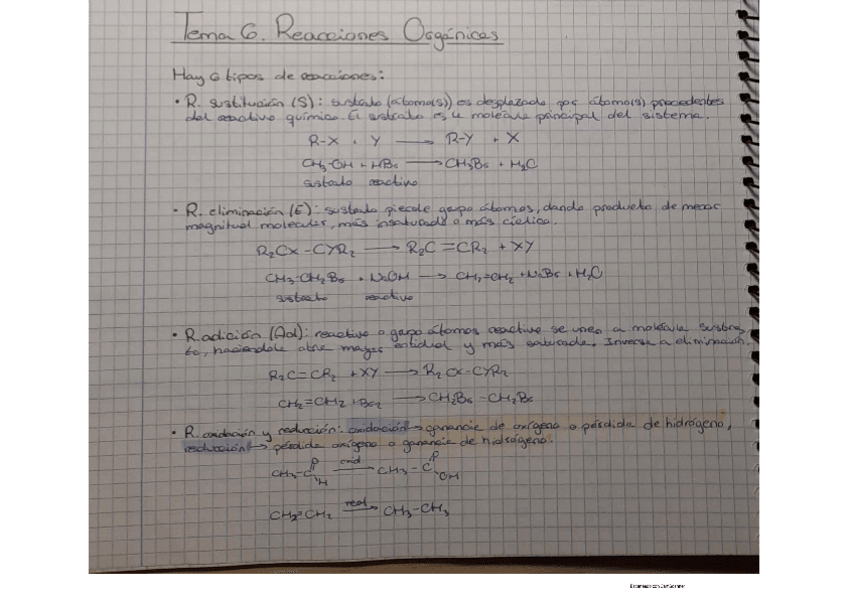 Tema 6. Reacciones Orgánicas
Hay 6 tipos de reacciones:
• R. sustitución (S): sustrato (átomo(s)) es desplazado por átomo(s) procedentes
del reactivo químico. El sustrato es la molécula principal del sistema.
R-X + Y ⟶ R-Y + X
CH₃-OH + HBr ⟶ CH₃Br + H₂O
sustrato reactivo
• R. eliminación (E): sustrato pierde grupo átomos, dando producto de menor
magnitud molecular, más insaturado o más cíclico.
R₂CX - CYR₂ ⟶ R₂C=CR₂ + XY
CH₃-CH₂Br + NaOH ⟶ CH₂=CH₂ + NaBr + H₂O
sustrato reactivo
• R. adición (Ad): reactivo o grupo átomos reactivo se unen a molécula sustra-
to, haciéndola otra mayor entidad y más saturada. Inversa a eliminación.
R₂C=CR₂ + XY ⟶ R₂CX-CYR₂
CH₂=CH₂ + Br₂ ⟶ CH₂Br-CH₂Br
• R. oxidación y reducción: oxidación → ganancia de oxígeno o pérdida de hidrógeno,
reducción → pérdida oxígeno o ganancia de hidrógeno.
CH₃-C O H oxid ⟶ CH₃-C O OH
CH₂=CH₂ red ⟶ CH₃-CH₃